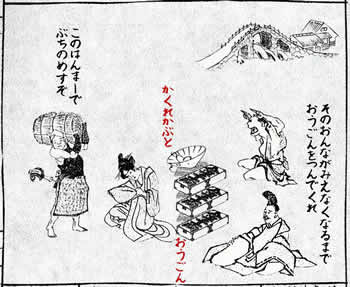 そのおんながみえなくなるまで
おうごんをつんでくれ
かくれかぶと
おうごん
このはんまーで
ぶちのめすぞ